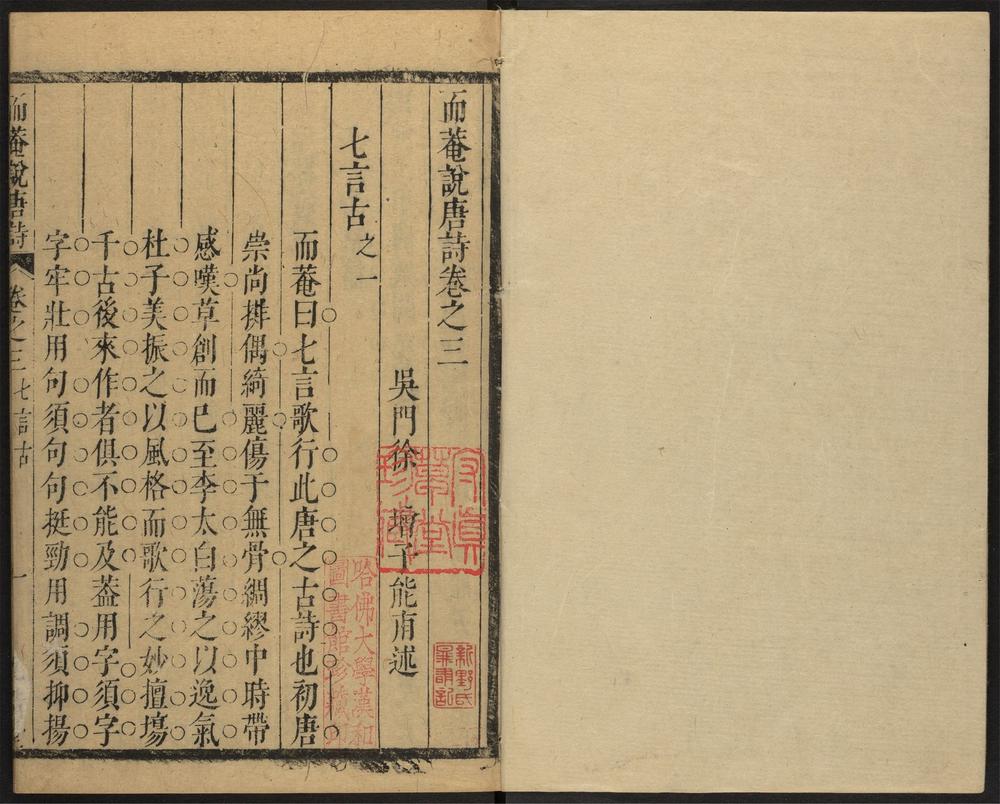 而菴說唐詩卷之三
吳門徐增子能甫述
七言古之一
而菴曰七言歌行此唐之古詩也初唐
崇尚排偶綺麗傷于無骨綢繆中時帶
感嘆草創而已至李太白蕩之以逸氣
杜子美振之以風格而歌行之妙擅塲
千古後來作者俱不能及葢用字須字
字牢壯用句須句句挺勁用調須抑揚
而菴說唐詩 卷之三 七言古 一
哈佛大學漢和
圖書館珍藏印